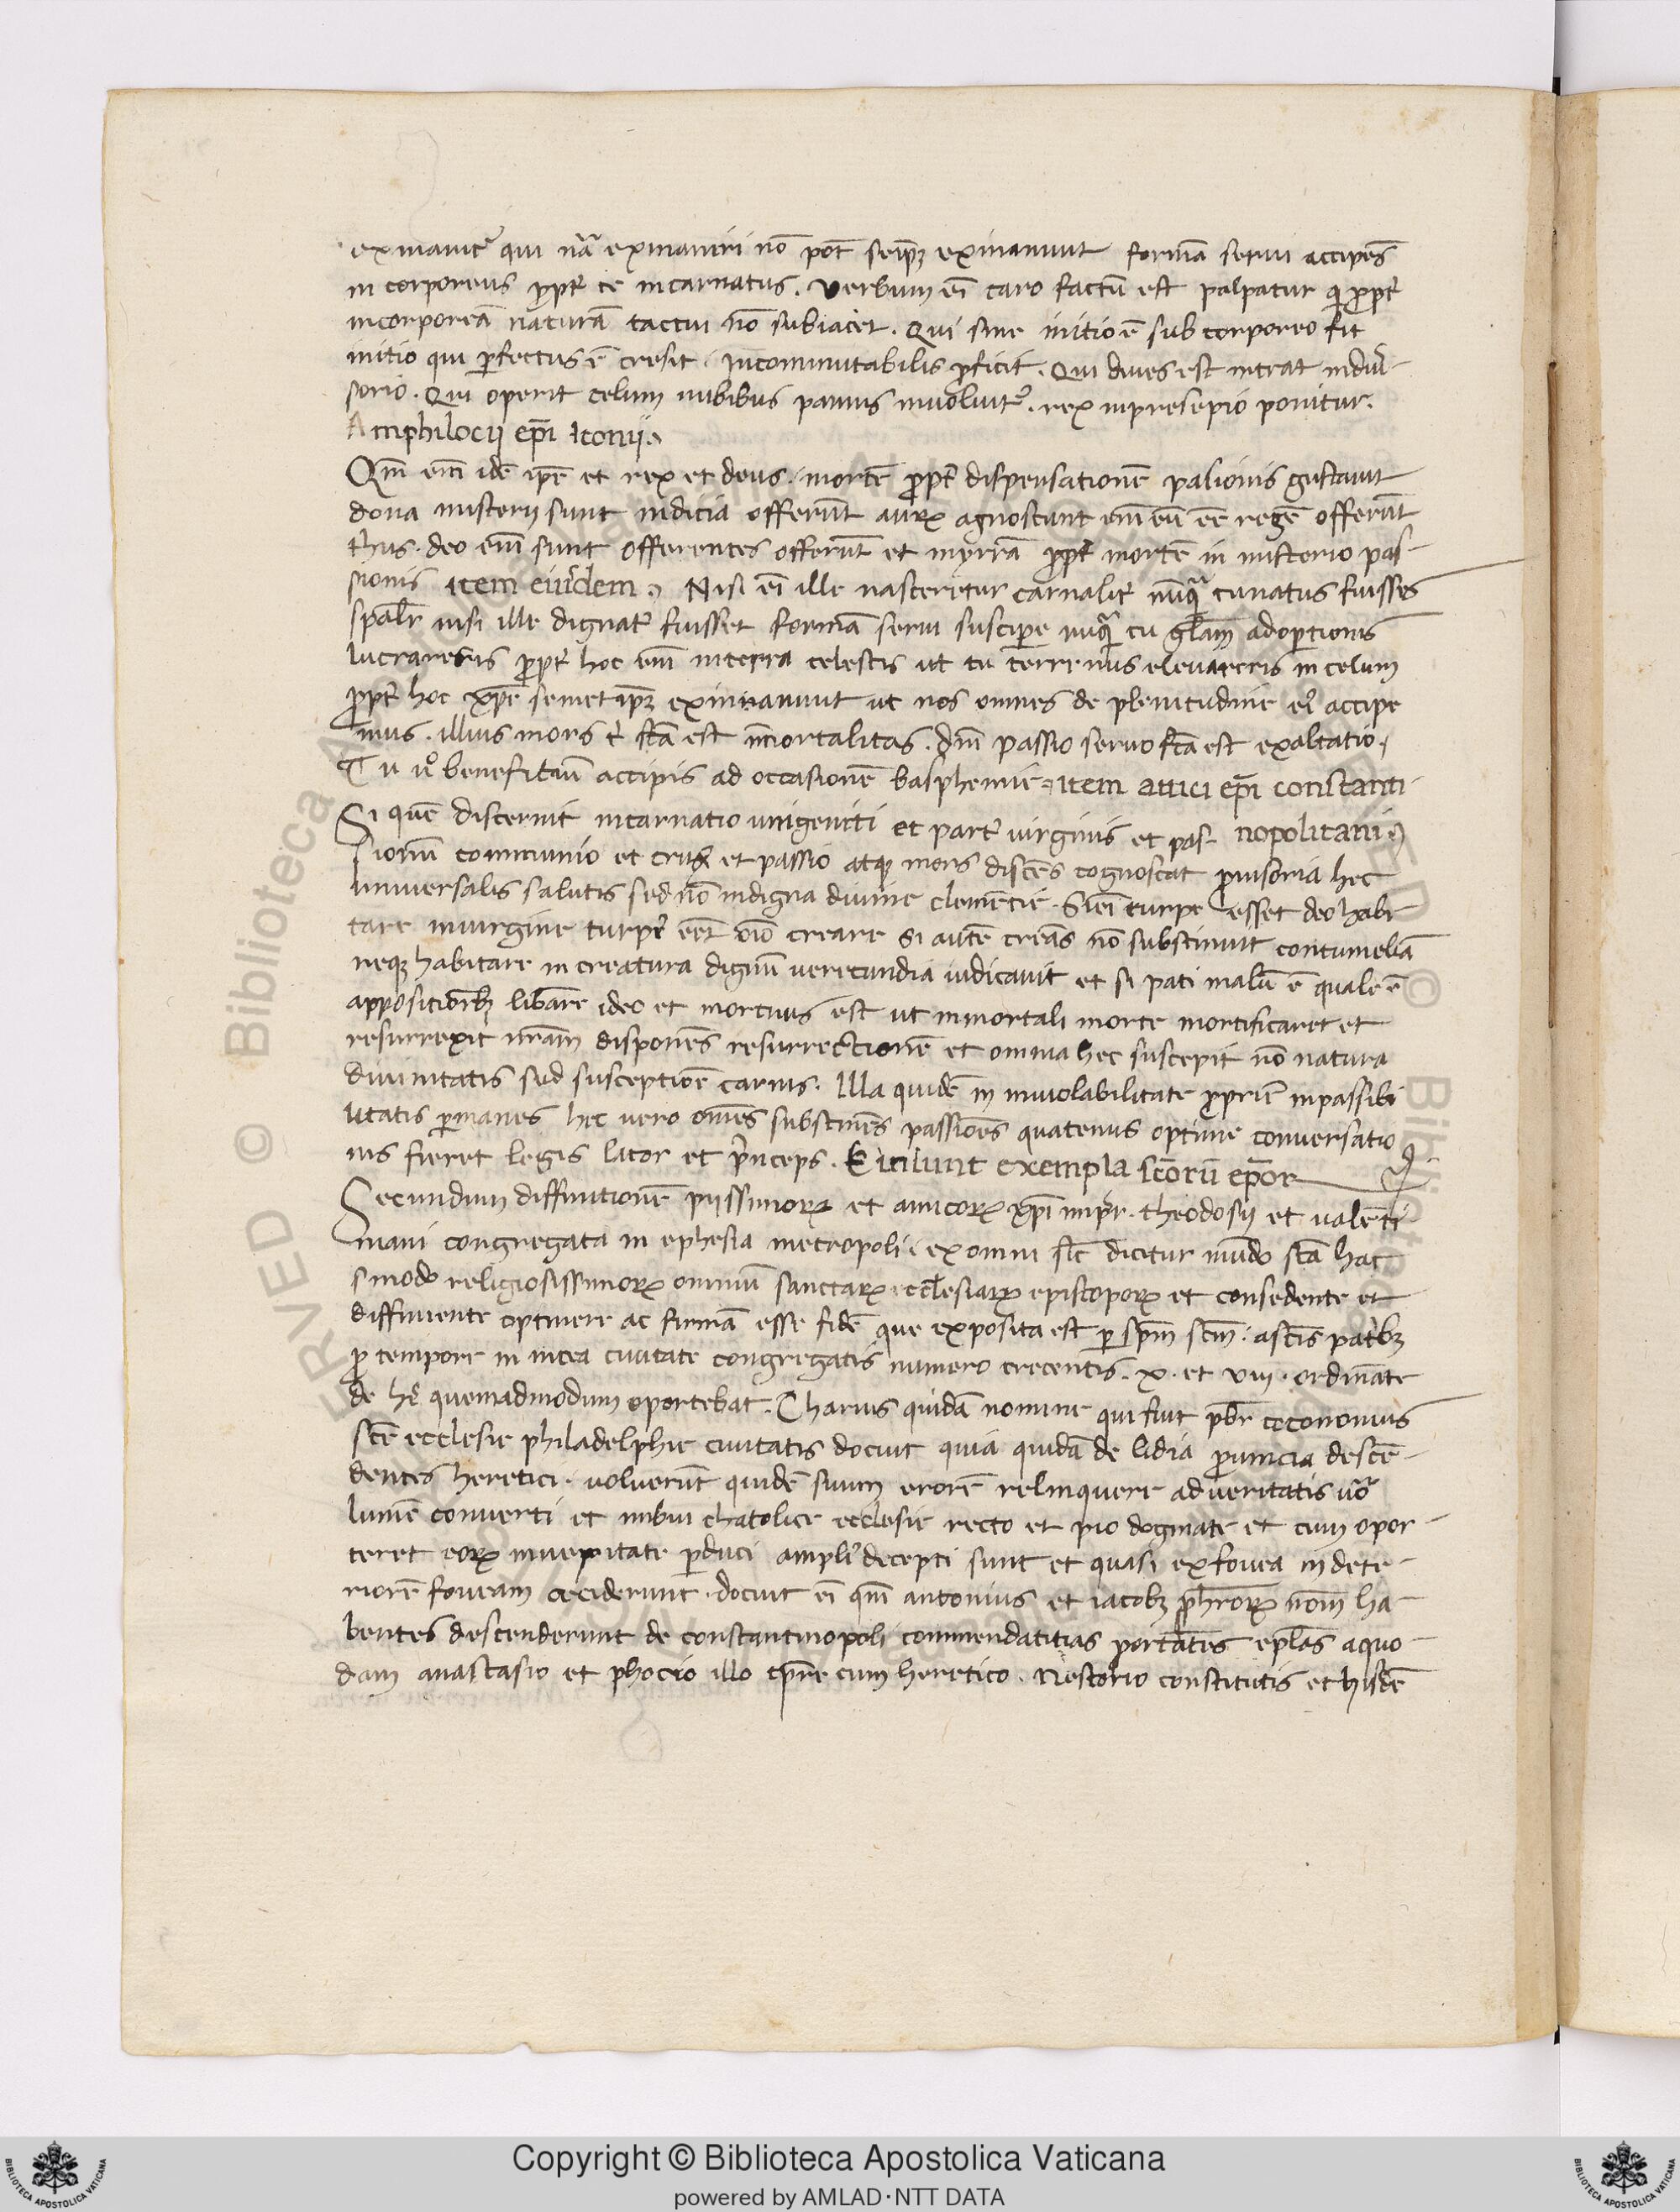 exinanit᷑ qui nr̄a exinaniri nō pōt seip̄ꝫ exinaniuit formā serui accipēs
in corporeus ꝓpt̄ te incarnatus. Verbum eī caro factū est palpatur q̇ ꝓpt̄
incorporeā naturā tactui nō subiacet. Qui sine initio ē sub corporeo fit
initio qui ꝑfectus ē cresit. Incommutabilis ꝓficit. Qui diues est intrat indiuer-
sorio. Qui operit celum nubibus pannis inuoluit᷑. rex inpresepio ponitur.
Amphilocij ep̄i Iconij.
Qm̄ em̄ idē ip̄e et rex et deus. mortē ꝓpt̄ dispensationē pasionis gustauit
dona misterij sunt indicia offerūt auꝝ agnoscunt em̄ eū eē regē offerūt
thus. deo em̄ sunt offerentes offerūt et myrrā ꝓpt̄ mortē in misterio pas-
sionis item eiusdem. Nisi eī ille nasceretur carnalit̄ nūq̄ tu natus fuisses
sp̄alr̄ nisi ille dignat᷑ fuisset formā serui suscipere nūq̄ tu gl̄iam adoptionis
lucrareris ꝓpt̄ hoc em̄ interra celestis ut tu terrenus eleuareris in celum
ꝓpt̄ hoc xp̄e semet ip̄ꝫ exinnaniuit ut nos omnes de plenitudine ei᷒ accipe
mus. illius mors t̄ fc̄a est īmortalitas. dn̄i passio seruo fc̄a est exaltatio.
Tu uͦ benefitiū accipis ad occasionē basphemie. item attici ep̄i constanti-
nopolitani
Si quē discernit incarnatio unigeniti et part᷒ uirginis et pas-
sionū communio et crux et passio atqꝫ mors discēs cognoscat ꝓuisoria hec
uniuersalis salutis sed nō indigna diuine clemētie. Si eī turpe esset deo habi
tare inuirgine turpe eēt oīo creare si autē creās nō substinuit contumeliā
neqꝫ habitare in creatura dignū uerecundia iudicauit et si pati malū ē quale ē
appositiōibꝫ libare ideo et mortuus est ut inmortali morte mortificaret et
resurrexit nr̄am disponēs resurrectionē et omnia hec suscepit nō natura
diuinitatis sud susceptioē carnis. Illa quidē in inuiolabilitate ꝓprie inpassibi
litatis ꝑmanēs hec uero omēs substinēs passioēs quatenus optime conuersatio
nis fieret legis lator et prīnceps. Expliciunt exempla sc̄orū ep̄or
Secundum diffinitionē pijssimoꝝ et amicoꝝ xp̄i imꝑ. theodosij et ualēti-
niani congregata in ephesia metropoli. ex omni sīc dicitur mūdo sc̄a hac
sinodo religiosissimoꝝ omniū sanctaꝝ ecclesiaꝝ episcopoꝝ et consedente et
diffiniente optinere ac firmā esse fidē que exposita est ꝑ sp̄m sc̄m. a sc̄is patr̄bꝫ
ꝓ tempore in nicea ciuitate congregatis numero crecentis. x. et viii. ordināte
de hīs quemadmodum oportebat. Charius quidā nomine qui fuit p̄br economus
sc̄e ecclesie philadelphie ciuitatis docuit quia quidā de lidia ꝓuincia descē-
dentes heretici. uoluerūt quidē suum erorē relinquere ad ueritatis ur̄o
lumē conuerti et imbui chatolice ecclesie recto et pio dogmate et cum opor-
teret eoꝝ inueritate ꝑduci ampli᷒ decepti sunt et quasi ex fouea in dete-
riorē foueam ceciderunt. docuit eī qm̄ antonius et iacobꝫ pb̄roꝝ nom̄ ha-
bentes descenderunt de constantinopoli commendatitias portātes epl̄as aquo-
dam anastasio et phocio illo tp̄re cum heretico. Nestorio constitutis et hisdē